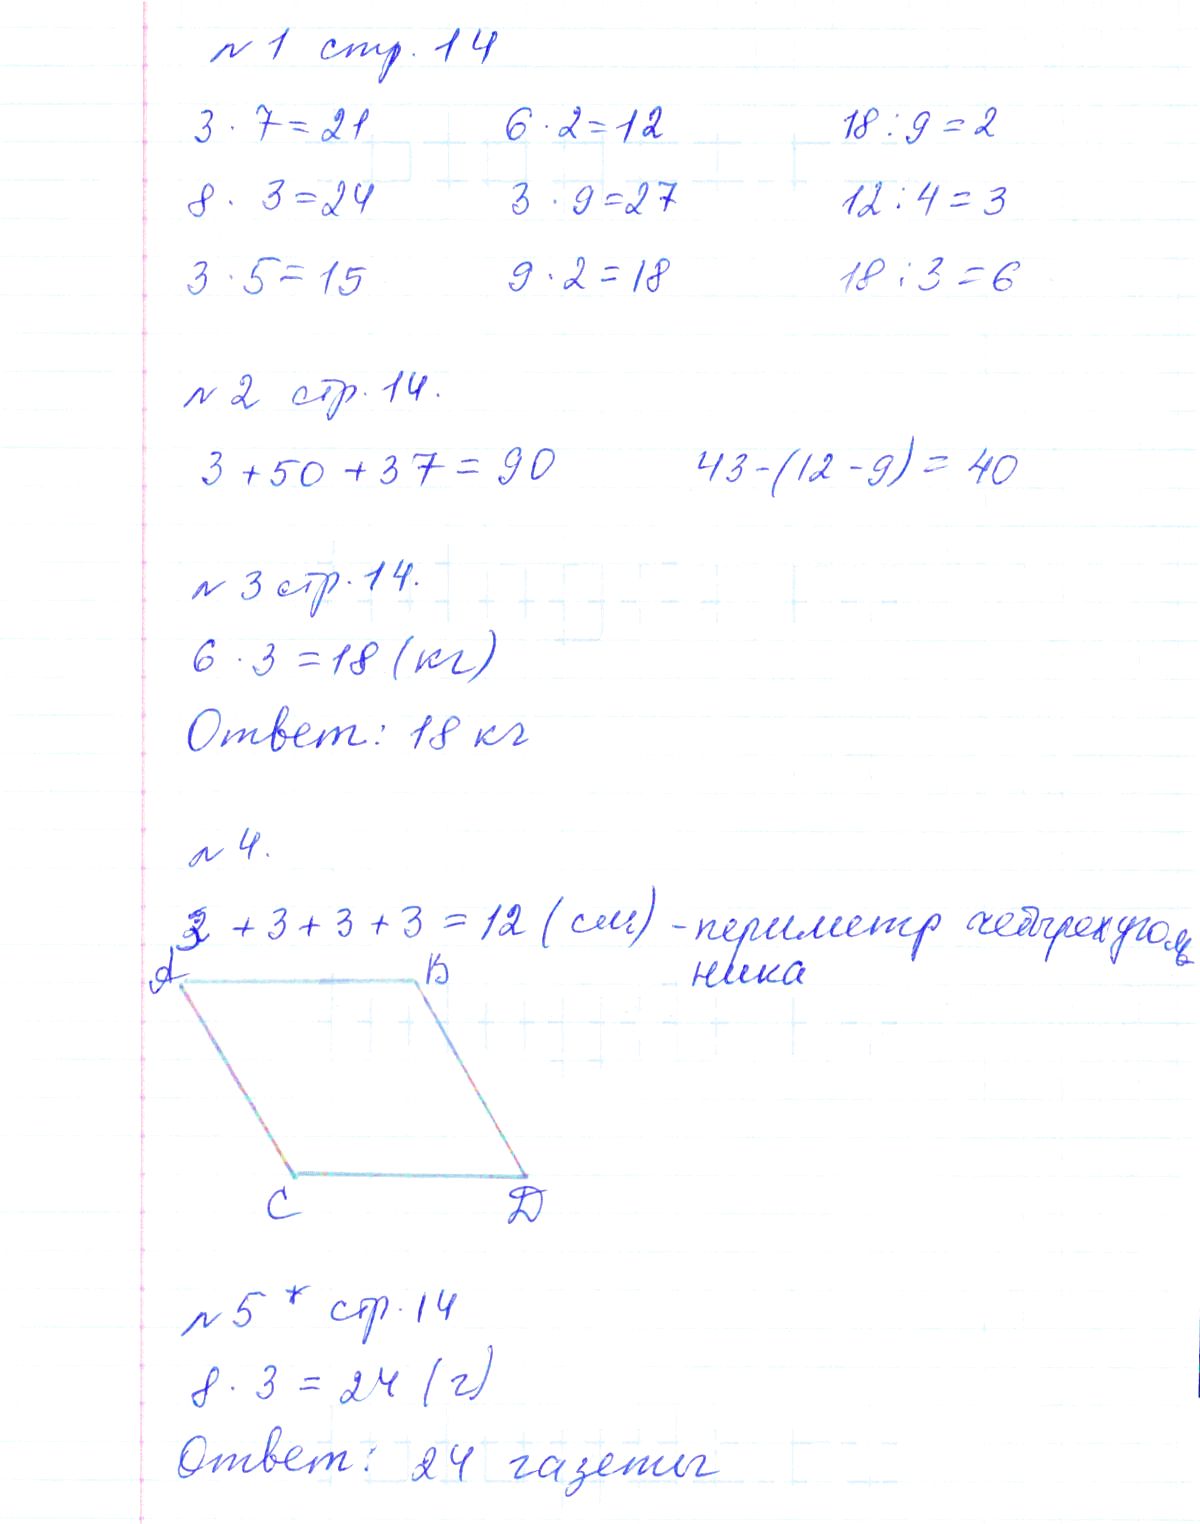 №1 стр. 14
3 · 7 = 21 6 · 2 = 12 18 : 9 = 2
8 · 3 = 24 3 · 9 = 27 12 : 4 = 3
3 · 5 = 15 9 · 2 = 18 18 : 3 = 6
№2 стр. 14.
3 + 50 + 37 = 90 43 - (12 - 9) = 40
№3 стр. 14.
6 · 3 = 18 (кг)
Ответ: 18 кг
№4.
3 + 3 + 3 + 3 = 12 (см) - периметр четырехуголь
ника
A B
C D
№5* стр. 14
8 · 3 = 24 (г)
Ответ: 24 газеты